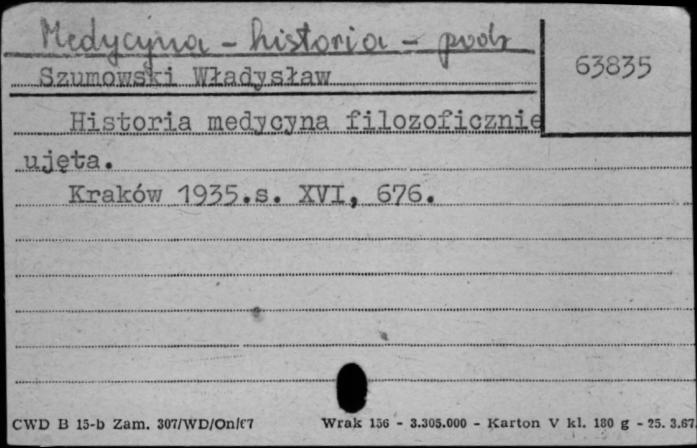 Medycyna - historia - podr
63835
Szumowski Władysław
Historia medycyna filozoficznie
ujęta.
Kraków 1935.s. XVI, 676.
CWD B 15-b Zam. 307/WD/On/67 Wrak 156 - 3.305.000 - Karton V kl. 180 g - 25. 3.67